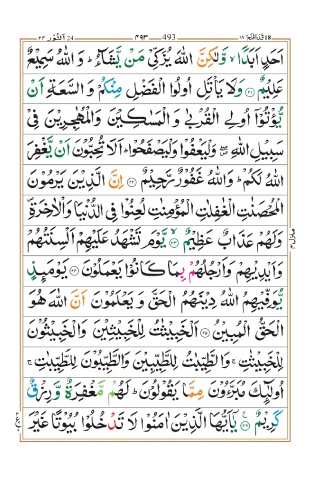 قد افلح ١٨ 493 ٤٩٣ النور 24
اَحَدٍ اَبَدًا ۙ وَّلٰكِنَّ اللّٰهَ يُزَكِّىْ مَنْ يَّشَآءُ ؕ وَ اللّٰهُ سَمِيْعٌ
عَلِيْمٌ ﴿۲۱﴾ وَلَا يَاْتَلِ اُولُوا الْفَضْلِ مِنْكُمْ وَ السَّعَةِ اَنْ
يُّؤْتُوْۤا اُولِى الْقُرْبٰى وَالْمَسٰكِيْنَ وَ الْمُهٰجِرِيْنَ فِىْ
سَبِيْلِ اللّٰهِ ۖ وَلْيَعْفُوْا وَلْيَصْفَحُوْا ؕ اَلَا تُحِبُّوْنَ اَنْ يَّغْفِرَ
اللّٰهُ لَكُمْ ؕ وَاللّٰهُ غَفُوْرٌ رَّحِيْمٌ ﴿۲۲﴾ اِنَّ الَّذِيْنَ يَرْمُوْنَ
الْمُحْصَنٰتِ الْغٰفِلٰتِ الْمُؤْمِنٰتِ لُعِنُوْا فِى الدُّنْيَا وَالْاٰخِرَةِ
وَلَهُمْ عَذَابٌ عَظِيْمٌ ﴿۲۳﴾ يَّوْمَ تَشْهَدُ عَلَيْهِمْ اَلْسِنَتُهُمْ
وَاَيْدِيْهِمْ وَاَرْجُلُهُمْ بِمَا كَانُوْا يَعْمَلُوْنَ ﴿۲۴﴾ يَوْمَٮِٕذٍ
يُّوَفِّيْهِمُ اللّٰهُ دِيْنَهُمُ الْحَقَّ وَ يَعْلَمُوْنَ اَنَّ اللّٰهَ هُوَ
الْحَقُّ الْمُبِيْنُ ﴿۲۵﴾ اَلْخَبِيْثٰتُ لِلْخَبِيْثِيْنَ وَالْخَبِيْثُوْنَ
لِلْخَبِيْثٰتِ ۚ وَالطَّيِّبٰتُ لِلطَّيِّبِيْنَ وَالطَّيِّبُوْنَ لِلطَّيِّبٰتِ ۚ
اُولٰٓٮِٕكَ مُبَرَّءُوْنَ مِمَّا يَقُوْلُوْنَ ؕ لَهُمْ مَّغْفِرَةٌ وَّرِزْقٌ
كَرِيْمٌ ﴿۲۶﴾ يٰۤاَيُّهَا الَّذِيْنَ اٰمَنُوْا لَا تَدْخُلُوْا بُيُوْتًا غَيْرَ